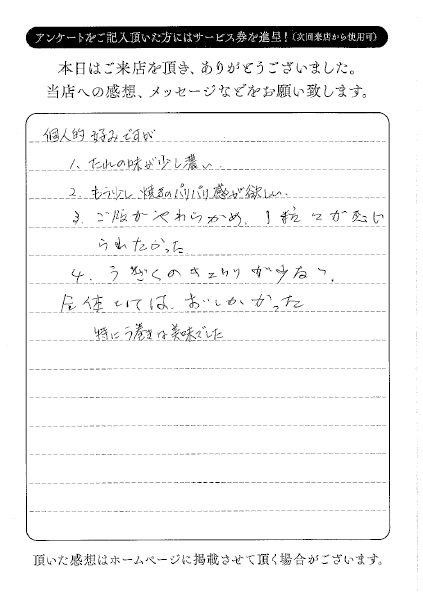 アンケートをご記入頂いた方にはサービス券を進呈!(次回来店から使用可)
本日はご来店を頂き、ありがとうございました。
当店への感想、メッセージなどをお願い致します。
個人的好みですが
1、たれの味が少し濃い.
2、もう少し焼きのパリパリ感が欲しい.
3、ご飯がやわらかめ、1粒々が感じ
られたかった
4、うざくのきゅうりが少ない.
全体としては、おいしかった
特にう巻きは美味でした
頂いた感想はホームページに掲載させて頂く場合がございます。